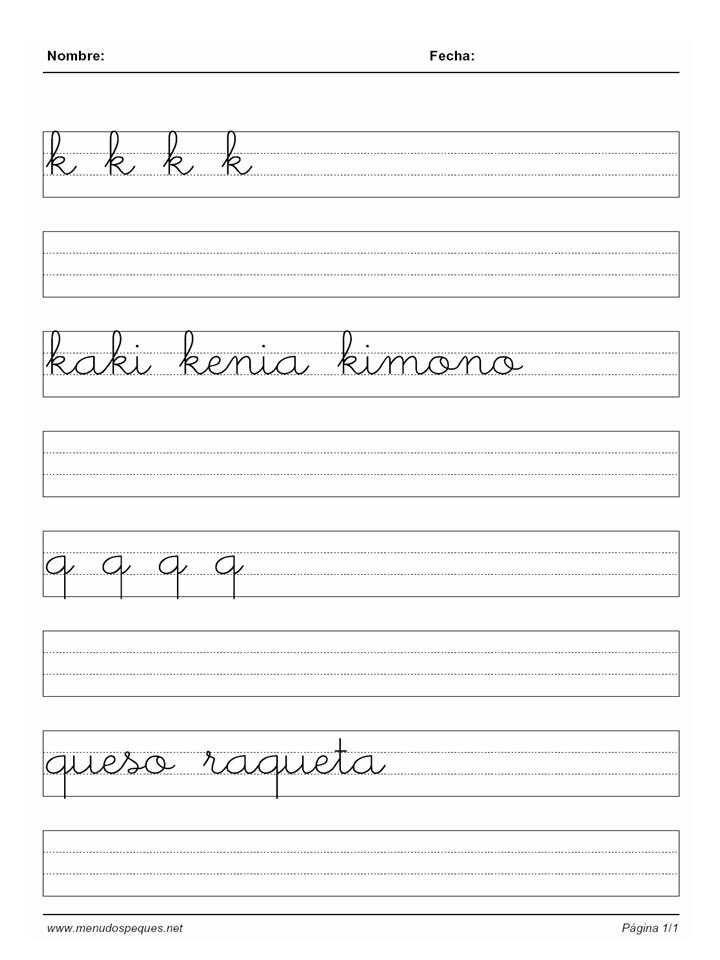 Nombre: Fecha:
k k k k
kaki kenia kimono
q q q q
queso raqueta
www.menudospeques.net Página 1/1